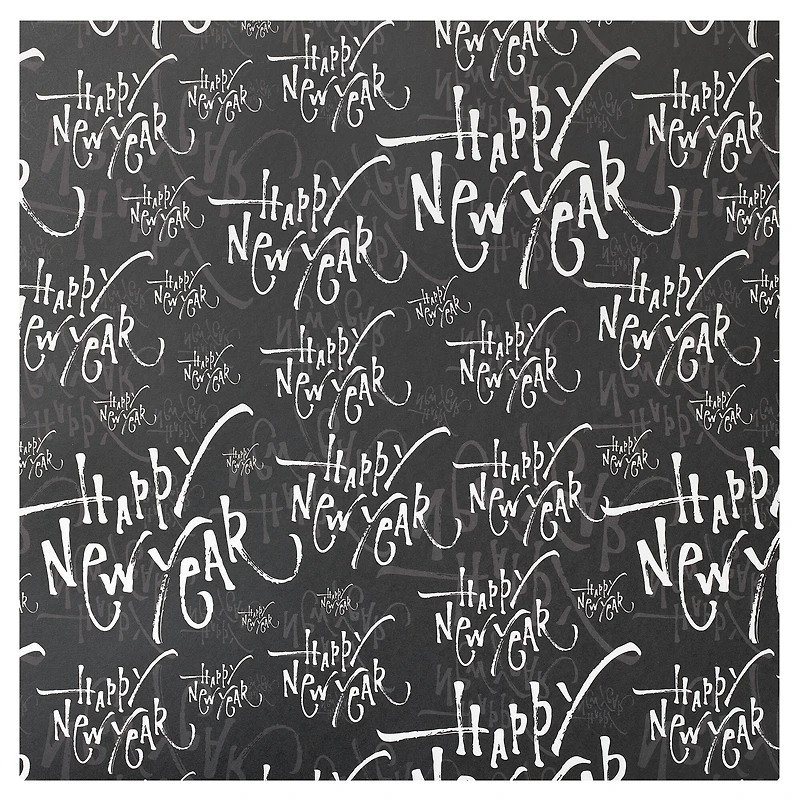 Happy
New Year
Happy
New Year
Happy
New Year
Happy
New Year
Happy
New Year
Happy
New Year
Happy
New Year
Happy
New Year
Happy
New Year
Happy
New Year
Happy
New Year
Happy
New Year
Happy
New Year
Happy
New Year
Happy
New Year
Happy
New Year
Happy
New Year
Happy
New Year
Happy
New Year
Happy
New Year
Happy
New Year
Happy
New Year
Happy
New Year
Happy
New Year
Happy
New Year
Happy
New Year
Happy
New Year
Happy
New Year
Happy
New Year
Happy